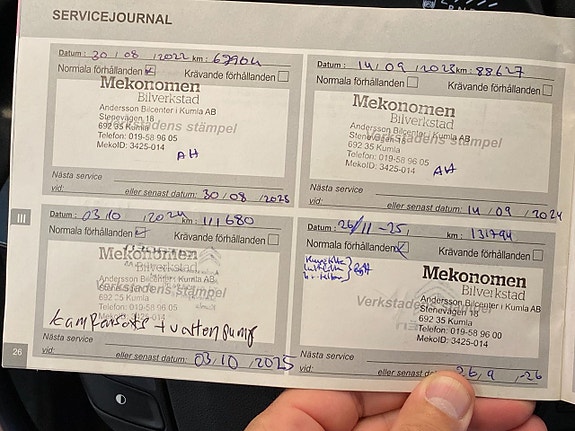 SERVICEJOURNAL
Datum: 30/08/2022 km: 62904
Normala förhållanden Krävande förhållanden
Mekonomen
Bilverkstad
Verkstadens stämpel
Andersson Bilcenter i Kumla AB
Stenevägen 18
692 35 Kumla
Telefon: 019-58 96 05
MekoID: 3425-014
AH
Nästa service
vid: eller senast datum: 30/08/2023
Datum: 14/09/2023 km: 88627
Normala förhållanden Krävande förhållanden
Mekonomen
Bilverkstad
Verkstadens stämpel
Andersson Bilcenter i Kumla AB
Stenevägen 18
692 35 Kumla
Telefon: 019-58 96 05
MekoID: 3425-014
AH
Nästa service
vid: eller senast datum: 14/09/2024
III
Datum: 03.10/2024 km: 111680
Normala förhållanden Krävande förhållanden
Bilverkstad
Verkstadens stämpel
Andersson Bilcenter i Kumla AB
Stenevägen 18
692 35 Kumla
Telefon: 019-58 96 05
MekoID: 3425-014
kamremsats + vattenpump
Nästa service
vid: eller senast datum: 03.10/2025
Datum: 26/11-25, km: 131794
Normala förhållanden Krävande förhållanden
Mekonomen
Bilverkstad
Verkstadens stämpel
Andersson Bilcenter i Kumla AB
Stenevägen 18
692 35 Kumla
Telefon: 019-58 96 00
MekoID: 3425-014
Nästa service
vid: eller senast datum: 26,9,-26
26